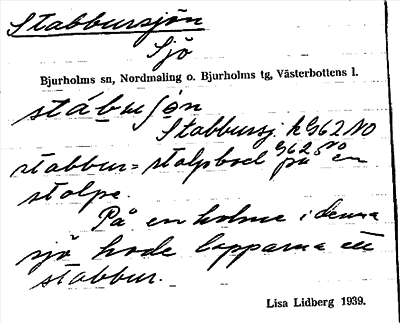 Stabbursjön
Sjö
Bjurholms sn, Nordmaling o. Bjurholms tg, Västerbottens l.
stábusjøn
Stabbursj. k G62 NO
G62 NO
stabbur = stolpbod på en
stolpe.
På en holme i denna
sjö hade lapparna ett
stabbur.
Lisa Lidberg 1939.